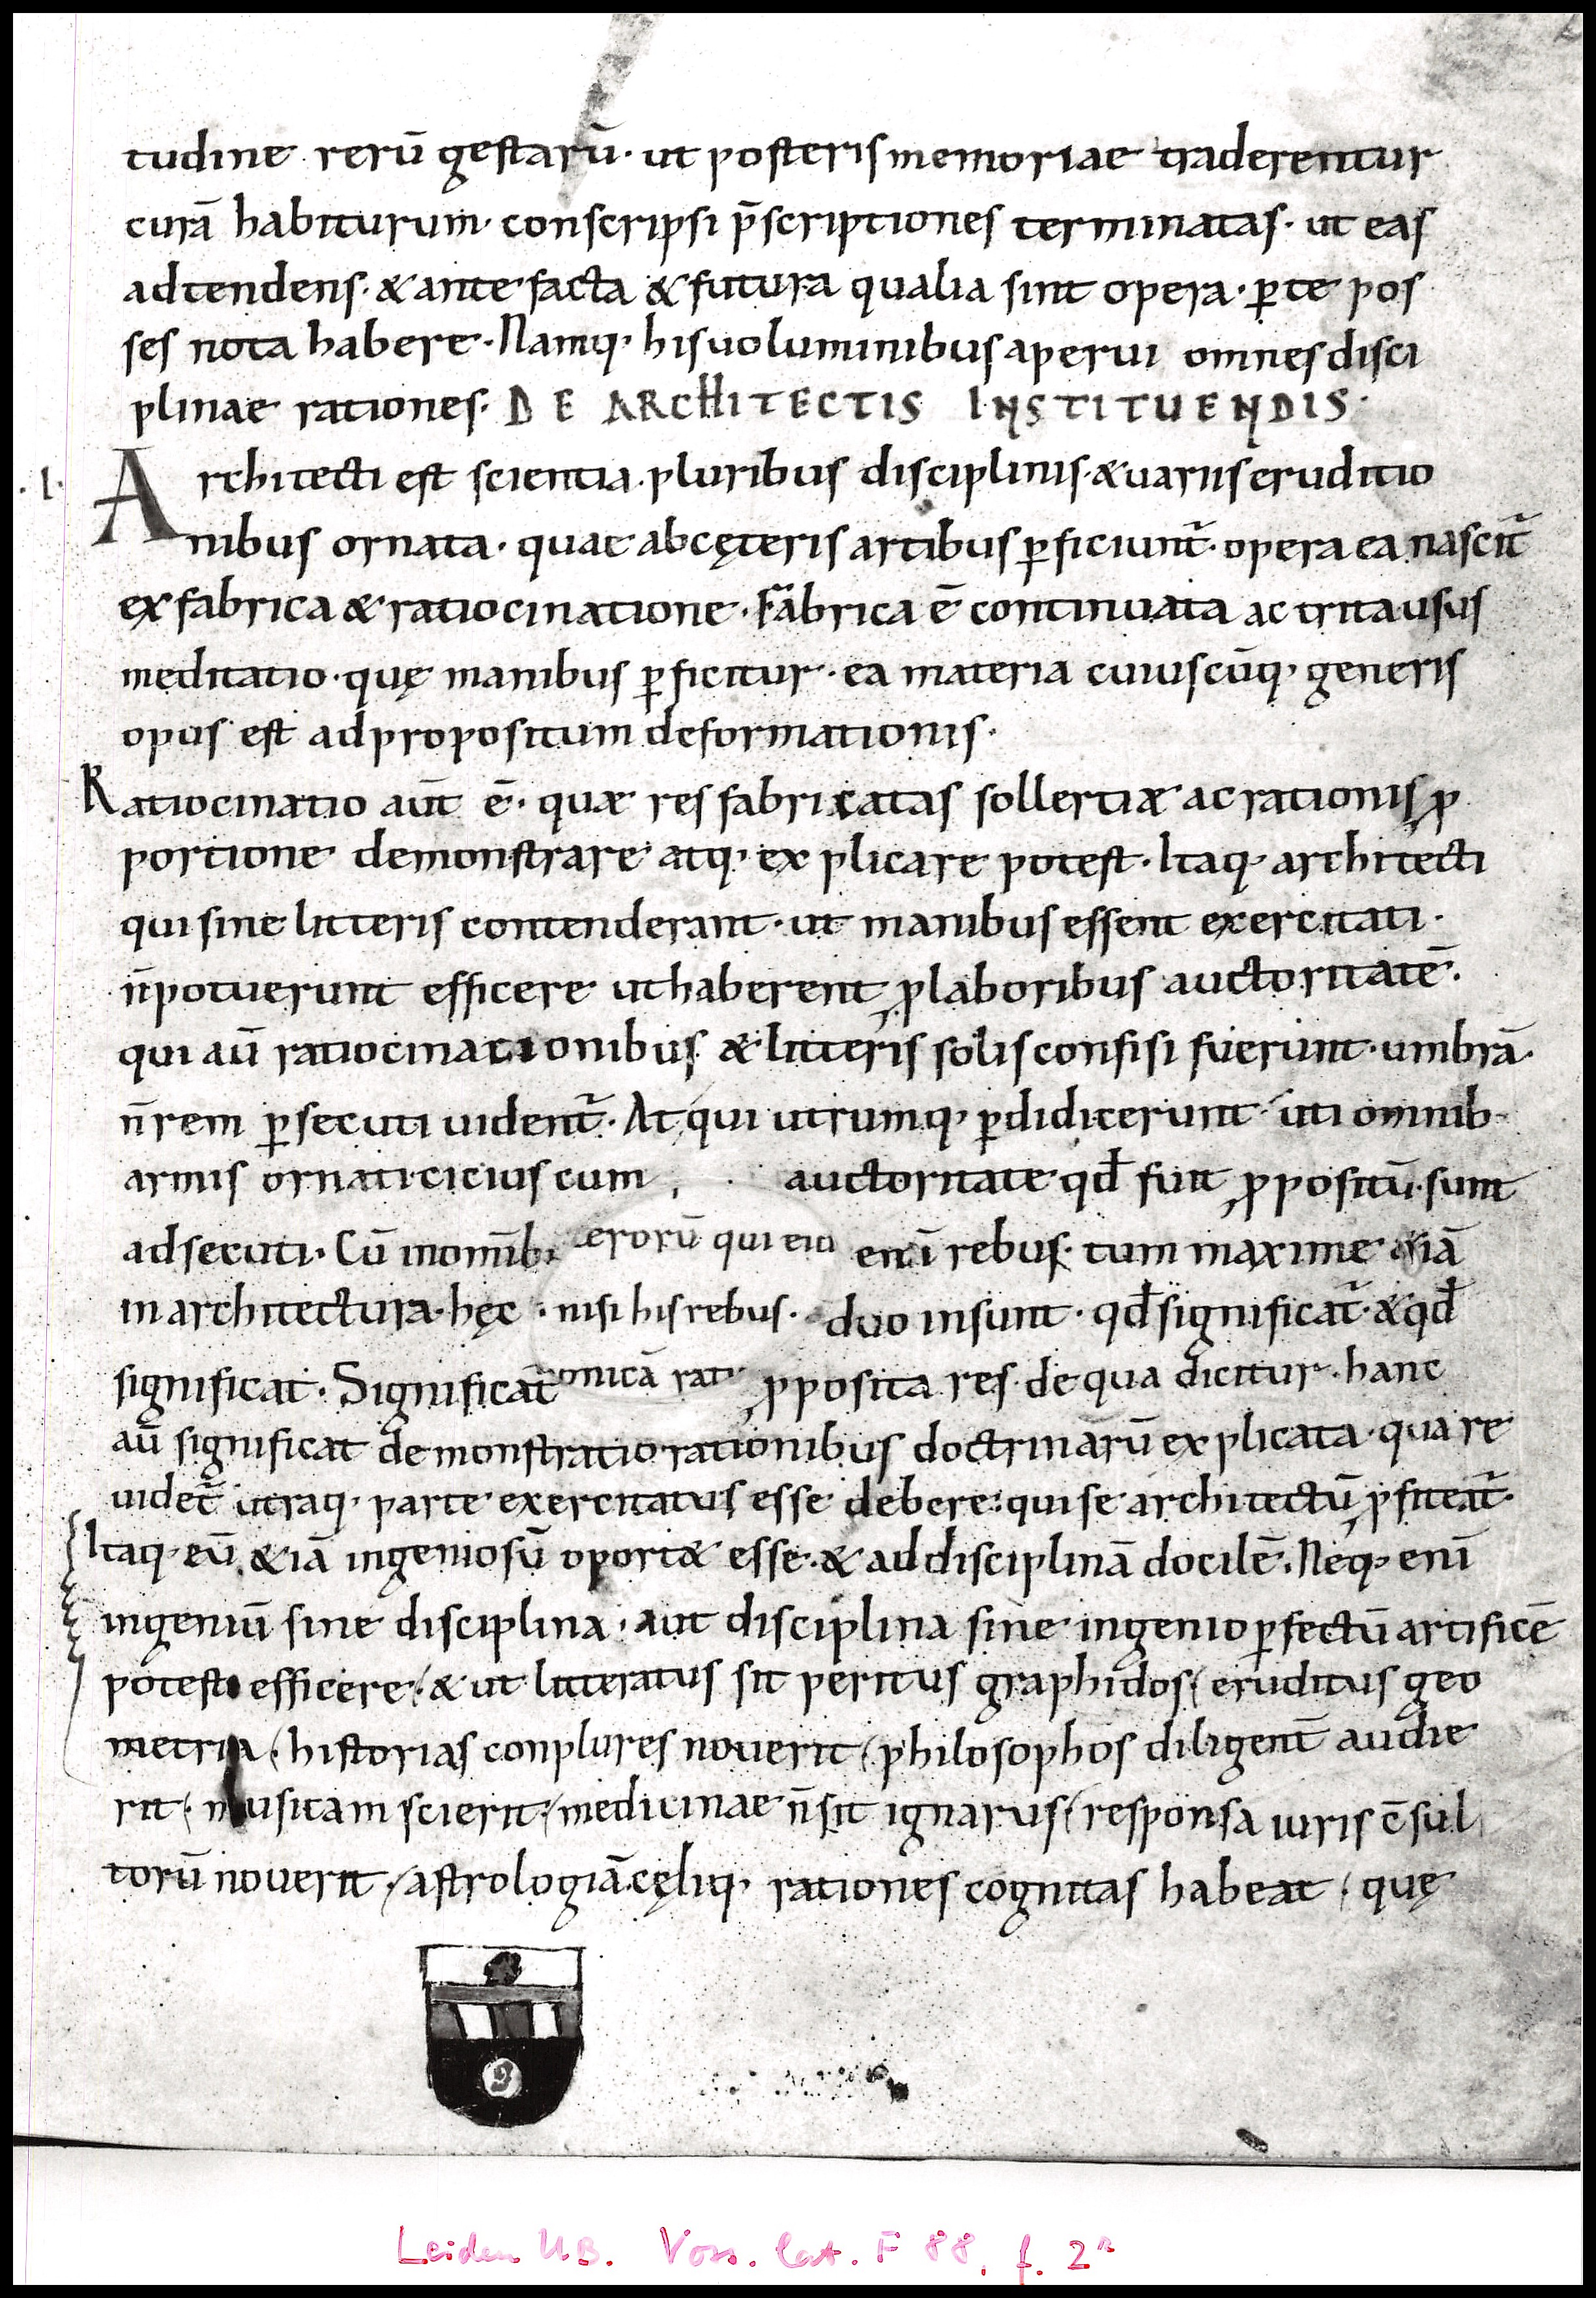 tudine rerū gestarū· ut posteris memoriae traderentur
curā habiturum· conscripsi p̄scriptiones terminatas· ut eas
adtendens· & ante facta & futura qualia sint opera· ꝑ te pos
ses nota habere· Namq· his uoluminibus aperui omnes disci
plinae rationes· DE ARCHITECTIS INSTITUENDIS·
·I· Architecti est scientia pluribus disciplinis· & uariis eruditio
nibus ornata· quae ab cęteris artibus ꝑficiunt̄· opera ea nascit̄
ex fabrica & ratiocinatione· Fabrica ē continuata ac trita usus
meditatio· quę manibus ꝑficitur· ea materia cuiuscūq· generis
opus est ad propositum deformationis·
Ratiocinatio aūt ē· quæ res fabricatas sollertiæ ac rationis ꝓ
portione demonstrare atq· explicare potest· Itaq· architecti
qui sine litteris contenderant· ut manibus essent exercitati·
n̄ potuerunt efficere ut haberent ꝓ laboribus auctoritatē·
qui aū ratiocinationibus & litteris solis confisi fuerunt· umbrā·
n̄ rem ꝑsecuti uident̄· At qui utrumq· ꝑdidicerunt· uti omnib·
armis ornati· cicius cum auctoritate qđ fuit ꝓpositū· sunt
adsecuti· Cū in omīb· erorū qui ei enī rebus· tum maxime &iā
in architectura· hęc · nisi his rebus· duo insunt· qđ significat̄· & qđ
significat· Significat̄ onicā rati ꝓposita res· de qua dicitur· hanc
aū significat demonstratio rationibus doctrinarū explicata· quare
uidet̄ utraq· parte exercitatus esse debere· qui se architectū ꝓfiteat̄·
Itaq· eū &iā ingeniosū oport& esse· & ad disciplinā docilē· Neq· enī
ingeniū sine disciplina· aut disciplina sine ingenio ꝑfectū artificē
potest efficere· & ut litteratus sit peritus graphidos· eruditus geo
metria· historias conplures nouerit· philosophos diligent̄ audie
rit· musicam scierit· medicinae n̄ sit ignarus· responsa iuris c̄sul
torū nouerit· astrologiā cęliq· rationes cognitas habeat· quę
Leiden U.B. Voss. Lat. F 88, f. 2r